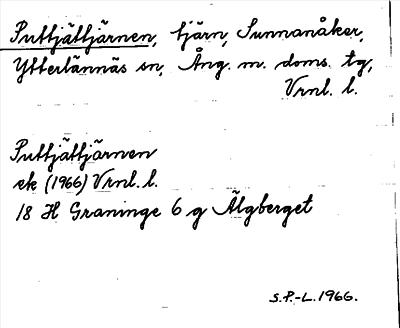 Puttjättjärnen, tjärn, Sunnanåker,
Ytterlännäs sn, Ång. m. doms. tg,
Vrnl. l.
Puttjättjärnen
ek (1966) Vrnl. l.
18 H Graninge 6 g Älgberget
S.P.-L. 1966.